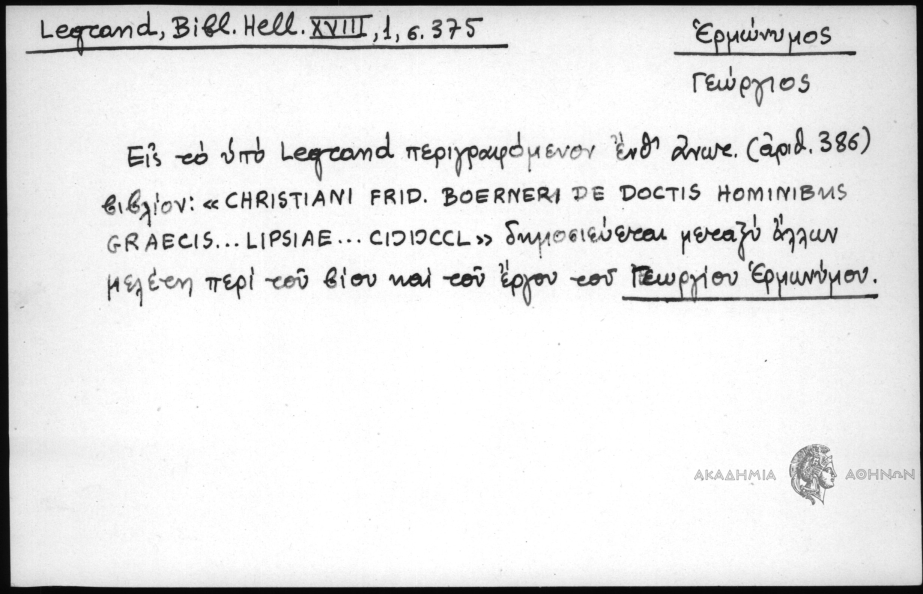 Legrand, Bibl. Hell. XVIII, 1, σ. 375
Ἑρμώνυμος
Γεώργιος
Εἰς τό ὑπό Legrand περιγραφόμενον ἔνθ' ἀνωτ. (ἀριθ. 386)
βιβλίον: «CHRISTIANI FRID. BOERNERI DE DOCTIS HOMINIBUS
GRAECIS... LIPSIAE... CIƆIƆCCL» δημοσιεύεται μεταξύ ἄλλων
μελέτη περί τοῦ βίου καί τοῦ ἔργου τοῦ Γεωργίου Ἑρμωνύμου.
ΑΚΑΔΗΜΙΑ ΑΘΗΝΩΝ